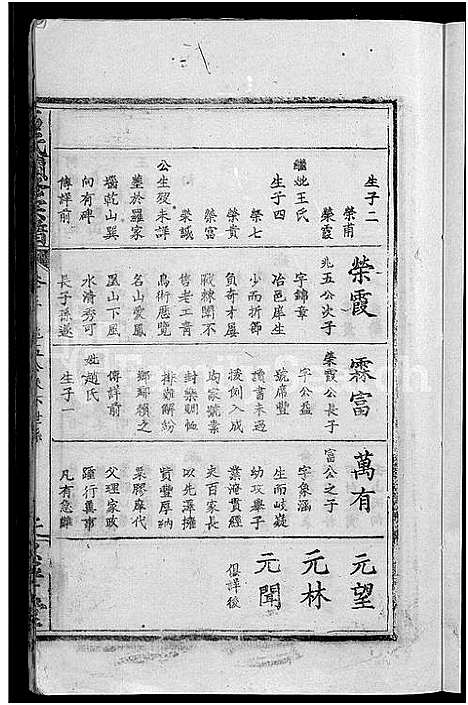 生子二
榮甫
榮霞
繼妣王氏
生子四
榮七
榮貴
榮富
榮誠
公生歿未詳
墓於羅家
壋乾山巽
向有碑
傳詳前
榮霞
兆五公次子
字錦章
冶邑庠生
少而折節
負奇才屢
戰棘闈不
售老工青
烏術歷覽
名山愛鳳
凰山下風
水清秀可
長子孫遂
霖富
榮霞公長子
字公益
號席豐
讀書未遇
援例入成
均家號素
封樂賙恤
排難解紛
鄉鄰賴之
傳詳前
妣趙氏
生子一
萬有
富公之子
字象涵
生而岐嶷
幼攻舉子
業淹貫經
史百家長
以先澤擁
貲豐厚納
粟膠庠代
父理家政
躍行冀事
凡有急難
元望
元林
元聞
俱詳後